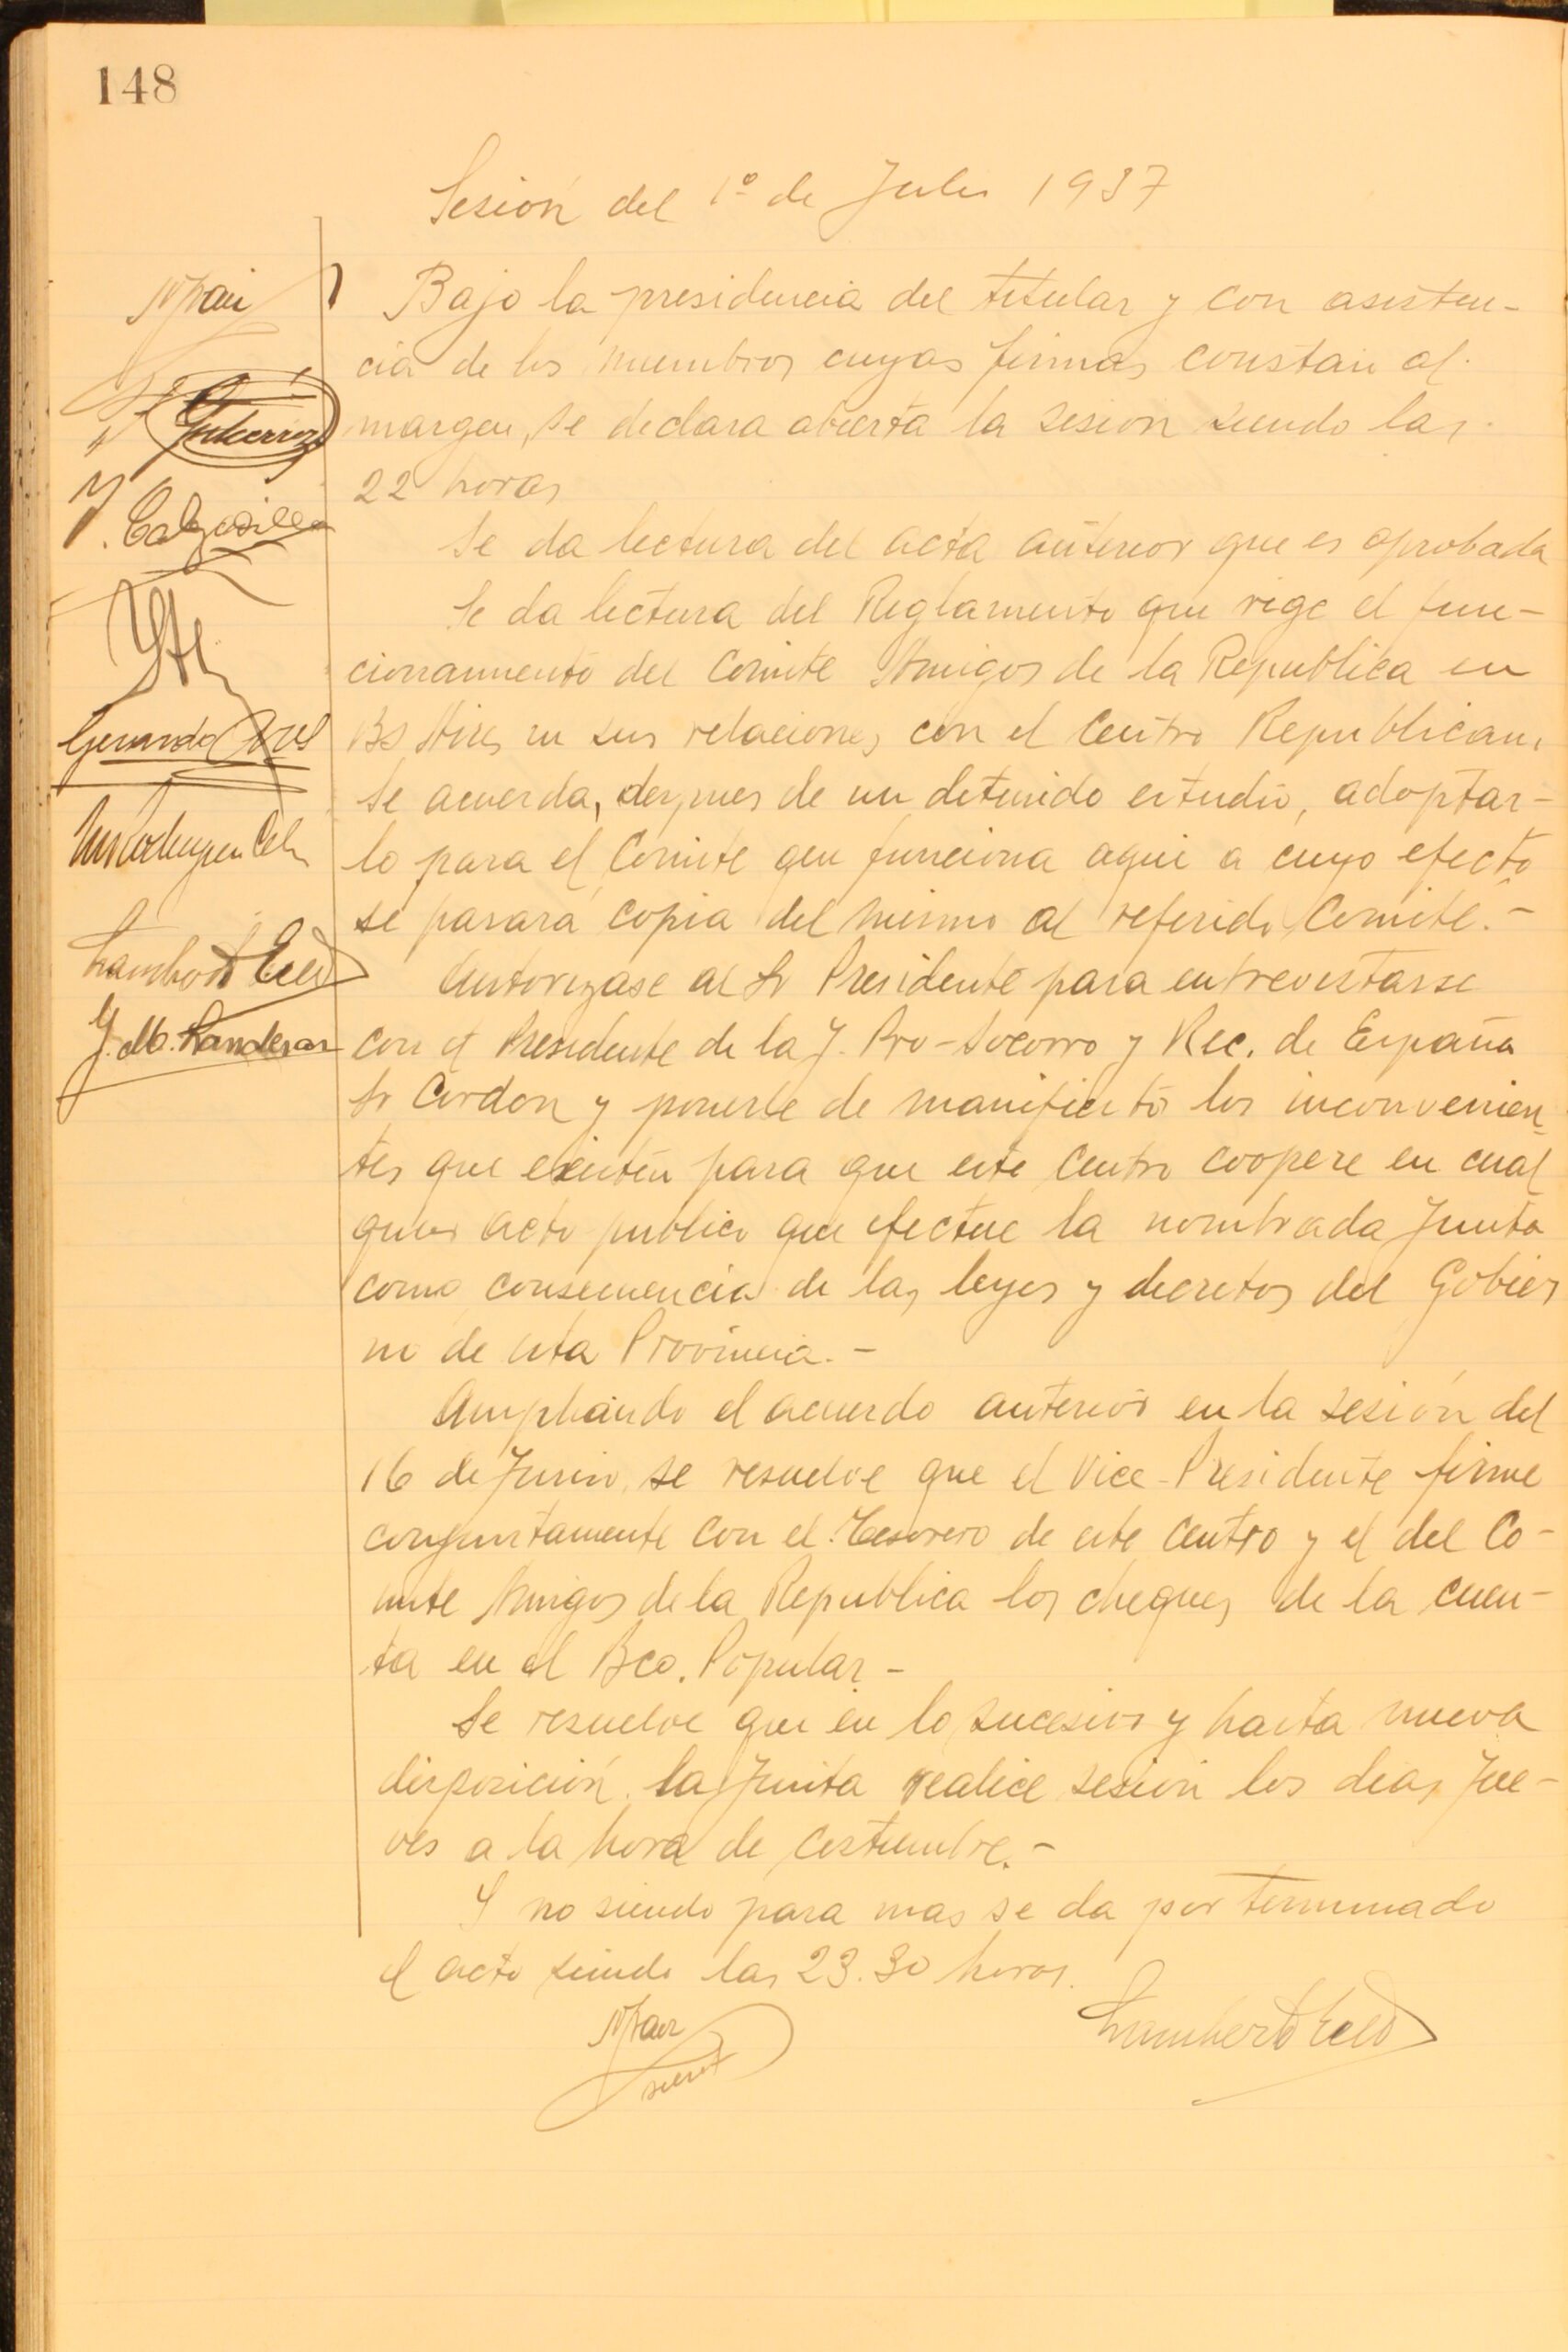 148
Sesión del 1º de Julio 1937
Bajo la presidencia del titular y con asisten-
cia de los miembros cuyas firmas constan al
margen, se declara abierta la sesion siendo las
22 horas
Se da lectura del acta anterior que es aprobada
Se da lectura del Reglamento que rige el fun-
cionamiento del Comite Amigos de la Republica en
Bs Aires en sus relaciones con el Centro Republicano
Se acuerda, despues de un detenido estudio, adoptar-
lo para el Comite que funciona aqui a cuyo efecto
se pasará copia del mismo al referido Comité.-
Autorizase al Sr Presidente para entrevistarse
con el Presidente de la J. Pro-Socorro y Rec. de España
Sr Cordon y ponerle de manifiesto los inconvenien-
tes que existen para que este Centro coopere en cual
quier acto publico que efectue la nombrada Junta
como consecuencia de las leyes y decretos del Gobier
no de esta Provincia.-
Ampliando el acuerdo anterior en la sesión del
16 de Junio, se resuelve que el Vice-Presidente firme
conjuntamente con el Tesorero de este Centro y el del Co-
mite Amigos de la Republica los cheques de la cuen-
ta en el Bco. Popular-
Se resuelve que en lo sucesivo y hasta nueva
disposición la Junta realice sesion los dias Jue-
ves a la hora de costumbre.-
Y no siendo para mas se da por terminado
el acto siendo las 23.30 horas.
Gutierrez
Calzadilla
Gerardo
J. M. Landesar